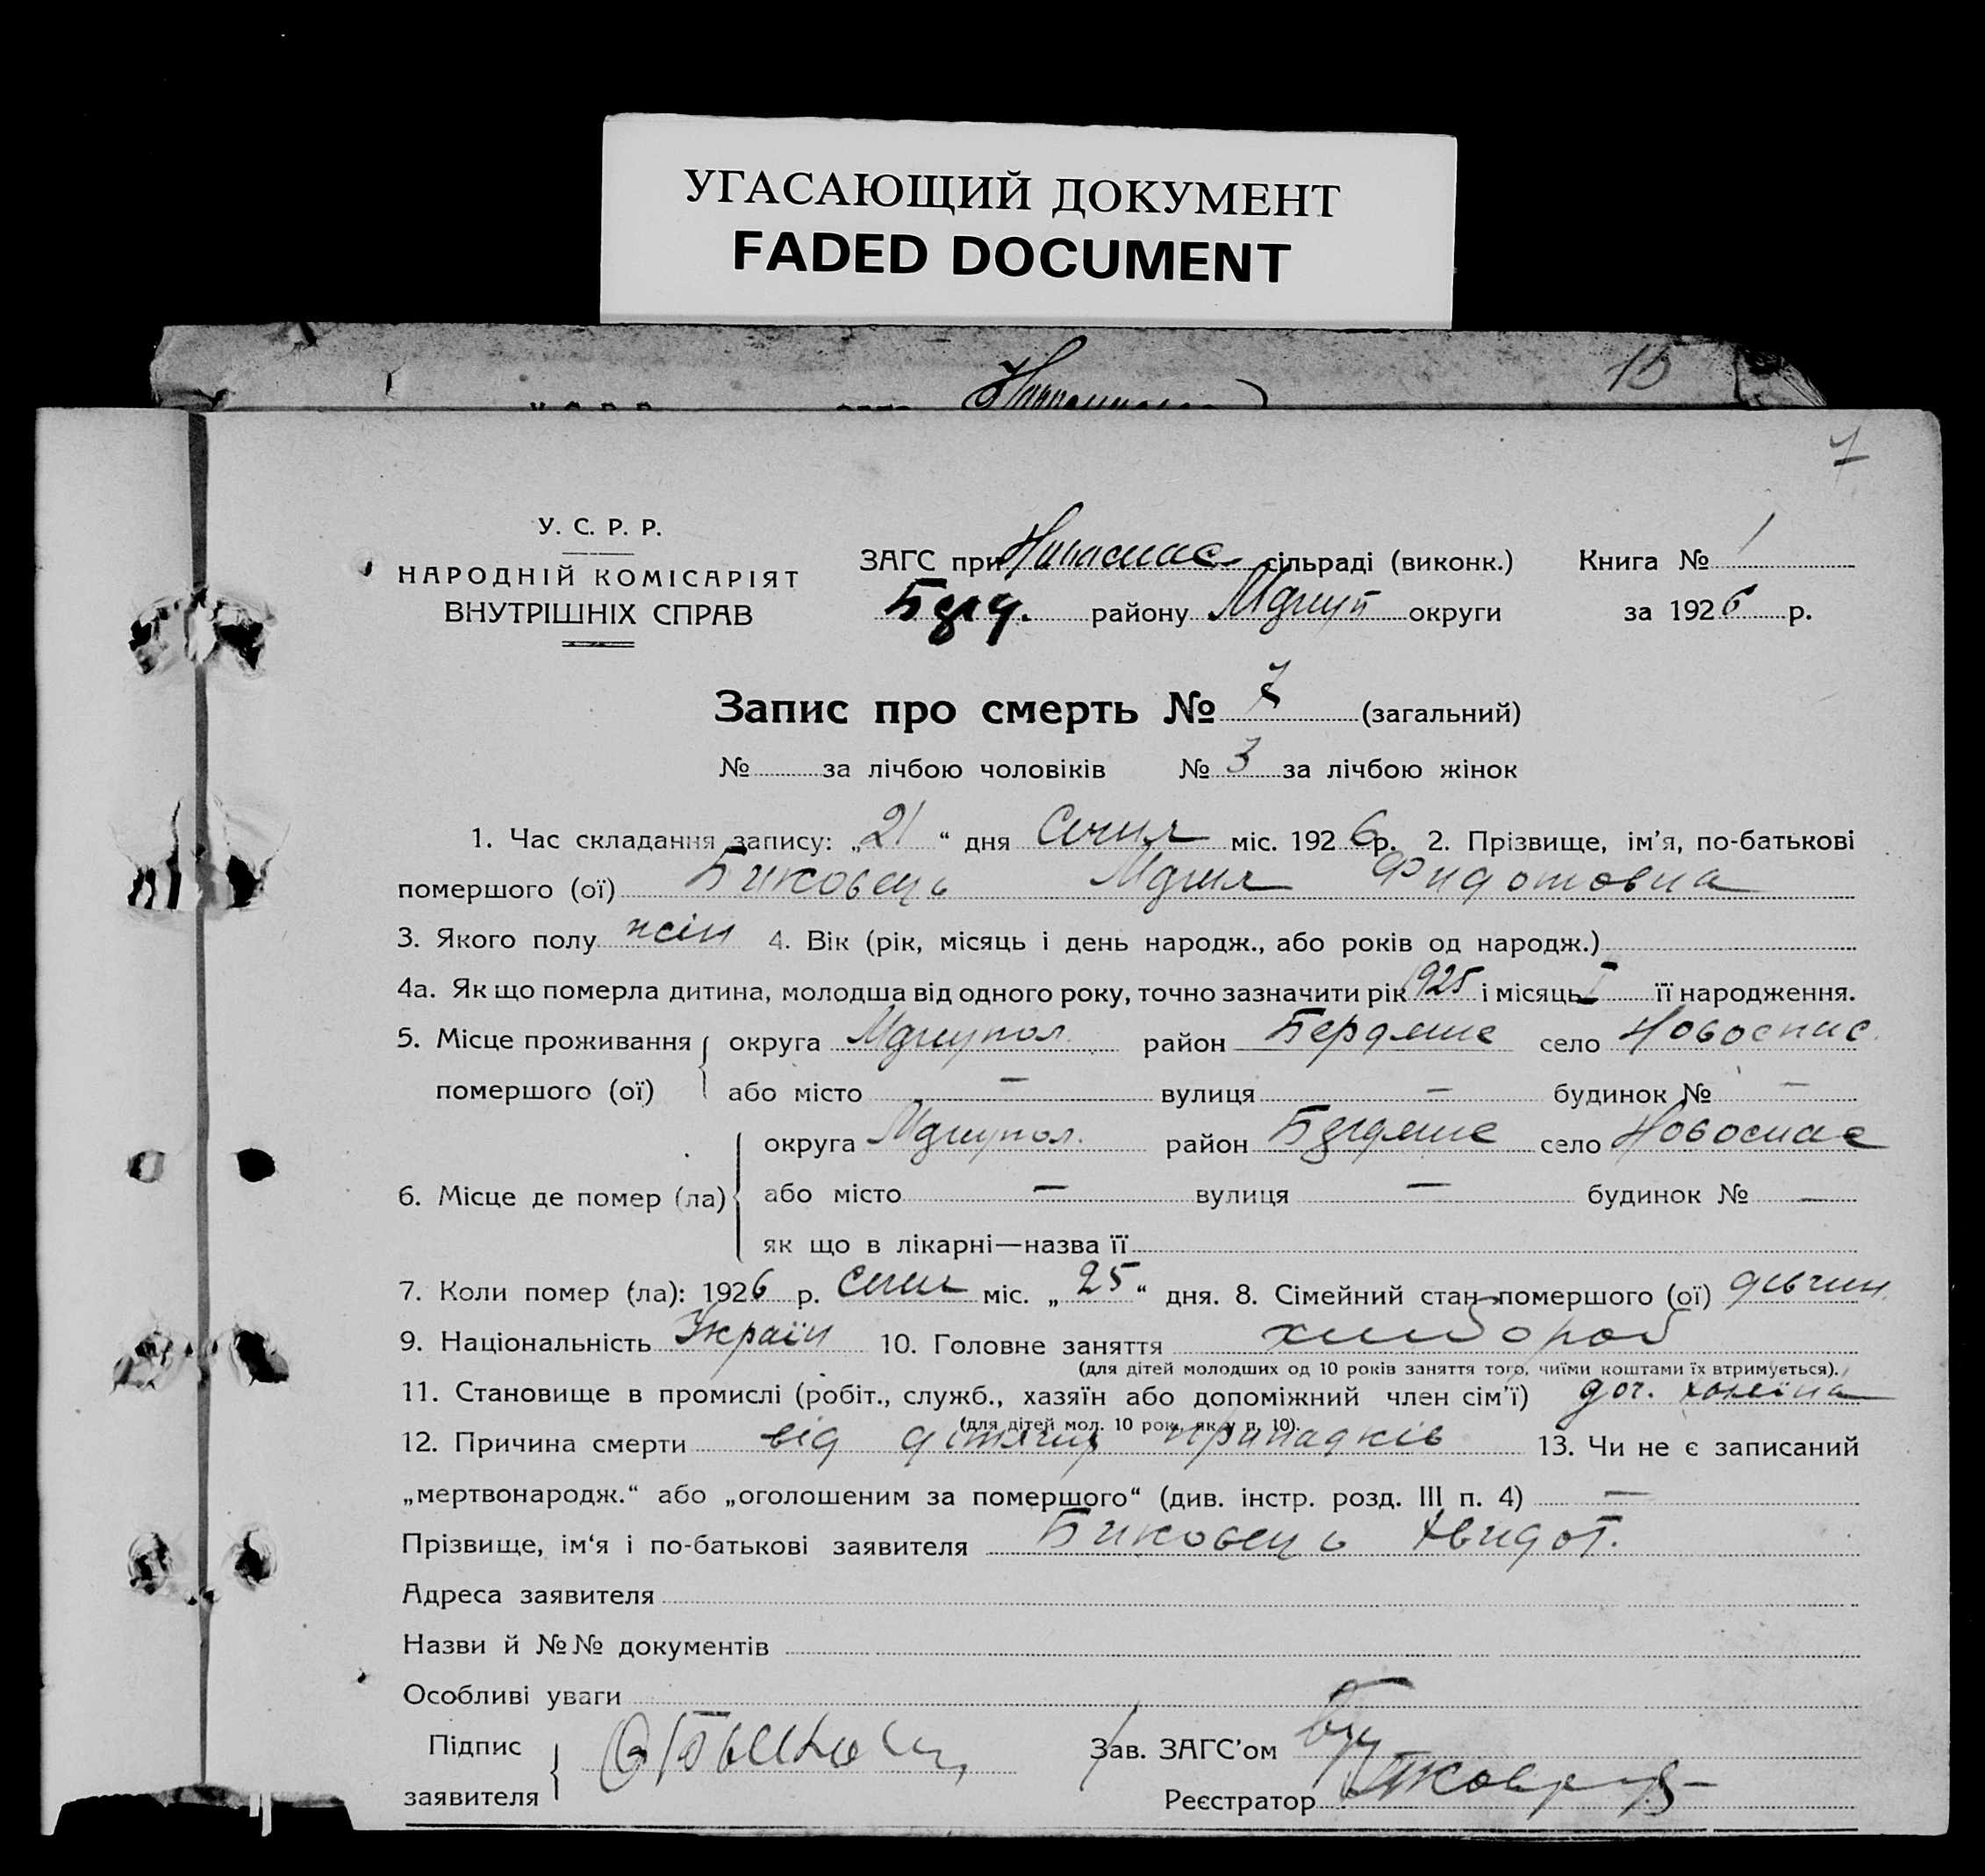 УГАСАЮЩИЙ ДОКУМЕНТ
FADED DOCUMENT
7
У. С. Р. Р.
НАРОДНІЙ КОМІСАРІЯТ
ВНУТРІШНІХ СПРАВ
ЗАГС при Новоспас сільраді (виконк.) Книга № 1
Берд. району Маріуп округи за 1926 р.
Запис про смерть № 7 (загальний)
№ за лічбою чоловіків № 3 за лічбою жінок
1. Час складання запису: „21“ дня Січня міс. 1926 р. 2. Прізвище, ім'я, по-батькові
помершого (ої) Биковець Марія Фидотовна
3. Якого полу жін 4. Вік (рік, місяць і день народж., або років од народж.)
4а. Як що померла дитина, молодша від одного року, точно зазначити рік 1925 і місяць I її народження.
5. Місце проживання округа Маріупол. район Бердянс село Новоспас.
помершого (ої) або місто — вулиця — будинок № —
округа Маріупол. район Бердянс село Новоспас
6. Місце де помер (ла) або місто — вулиця — будинок № —
як що в лікарні—назва її
7. Коли помер (ла): 1926 р. Січня міс. „25“ дня. 8. Сімейний стан помершого (ої) дівчин.
9. Національність Україн 10. Головне заняття хлібороб
(для дітей молодших од 10 років заняття того, чиїми коштами їх втримується).
11. Становище в промислі (робіт., служб., хазяїн або допоміжний член сім'ї) доч. хазяїна
(для дітей мол. 10 рок. як у п. 10).
12. Причина смерти від дітячих припадків 13. Чи не є записаний
„мертвонародж.“ або „оголошеним за помершого“ (див. інстр. розд. III п. 4) —
Прізвище, ім'я і по-батькові заявителя Биковець Хвидот.
Адреса заявителя
Назви й №№ документів
Особливі уваги
Підпис
заявителя
Зав. ЗАГС'ом
Реєстратор